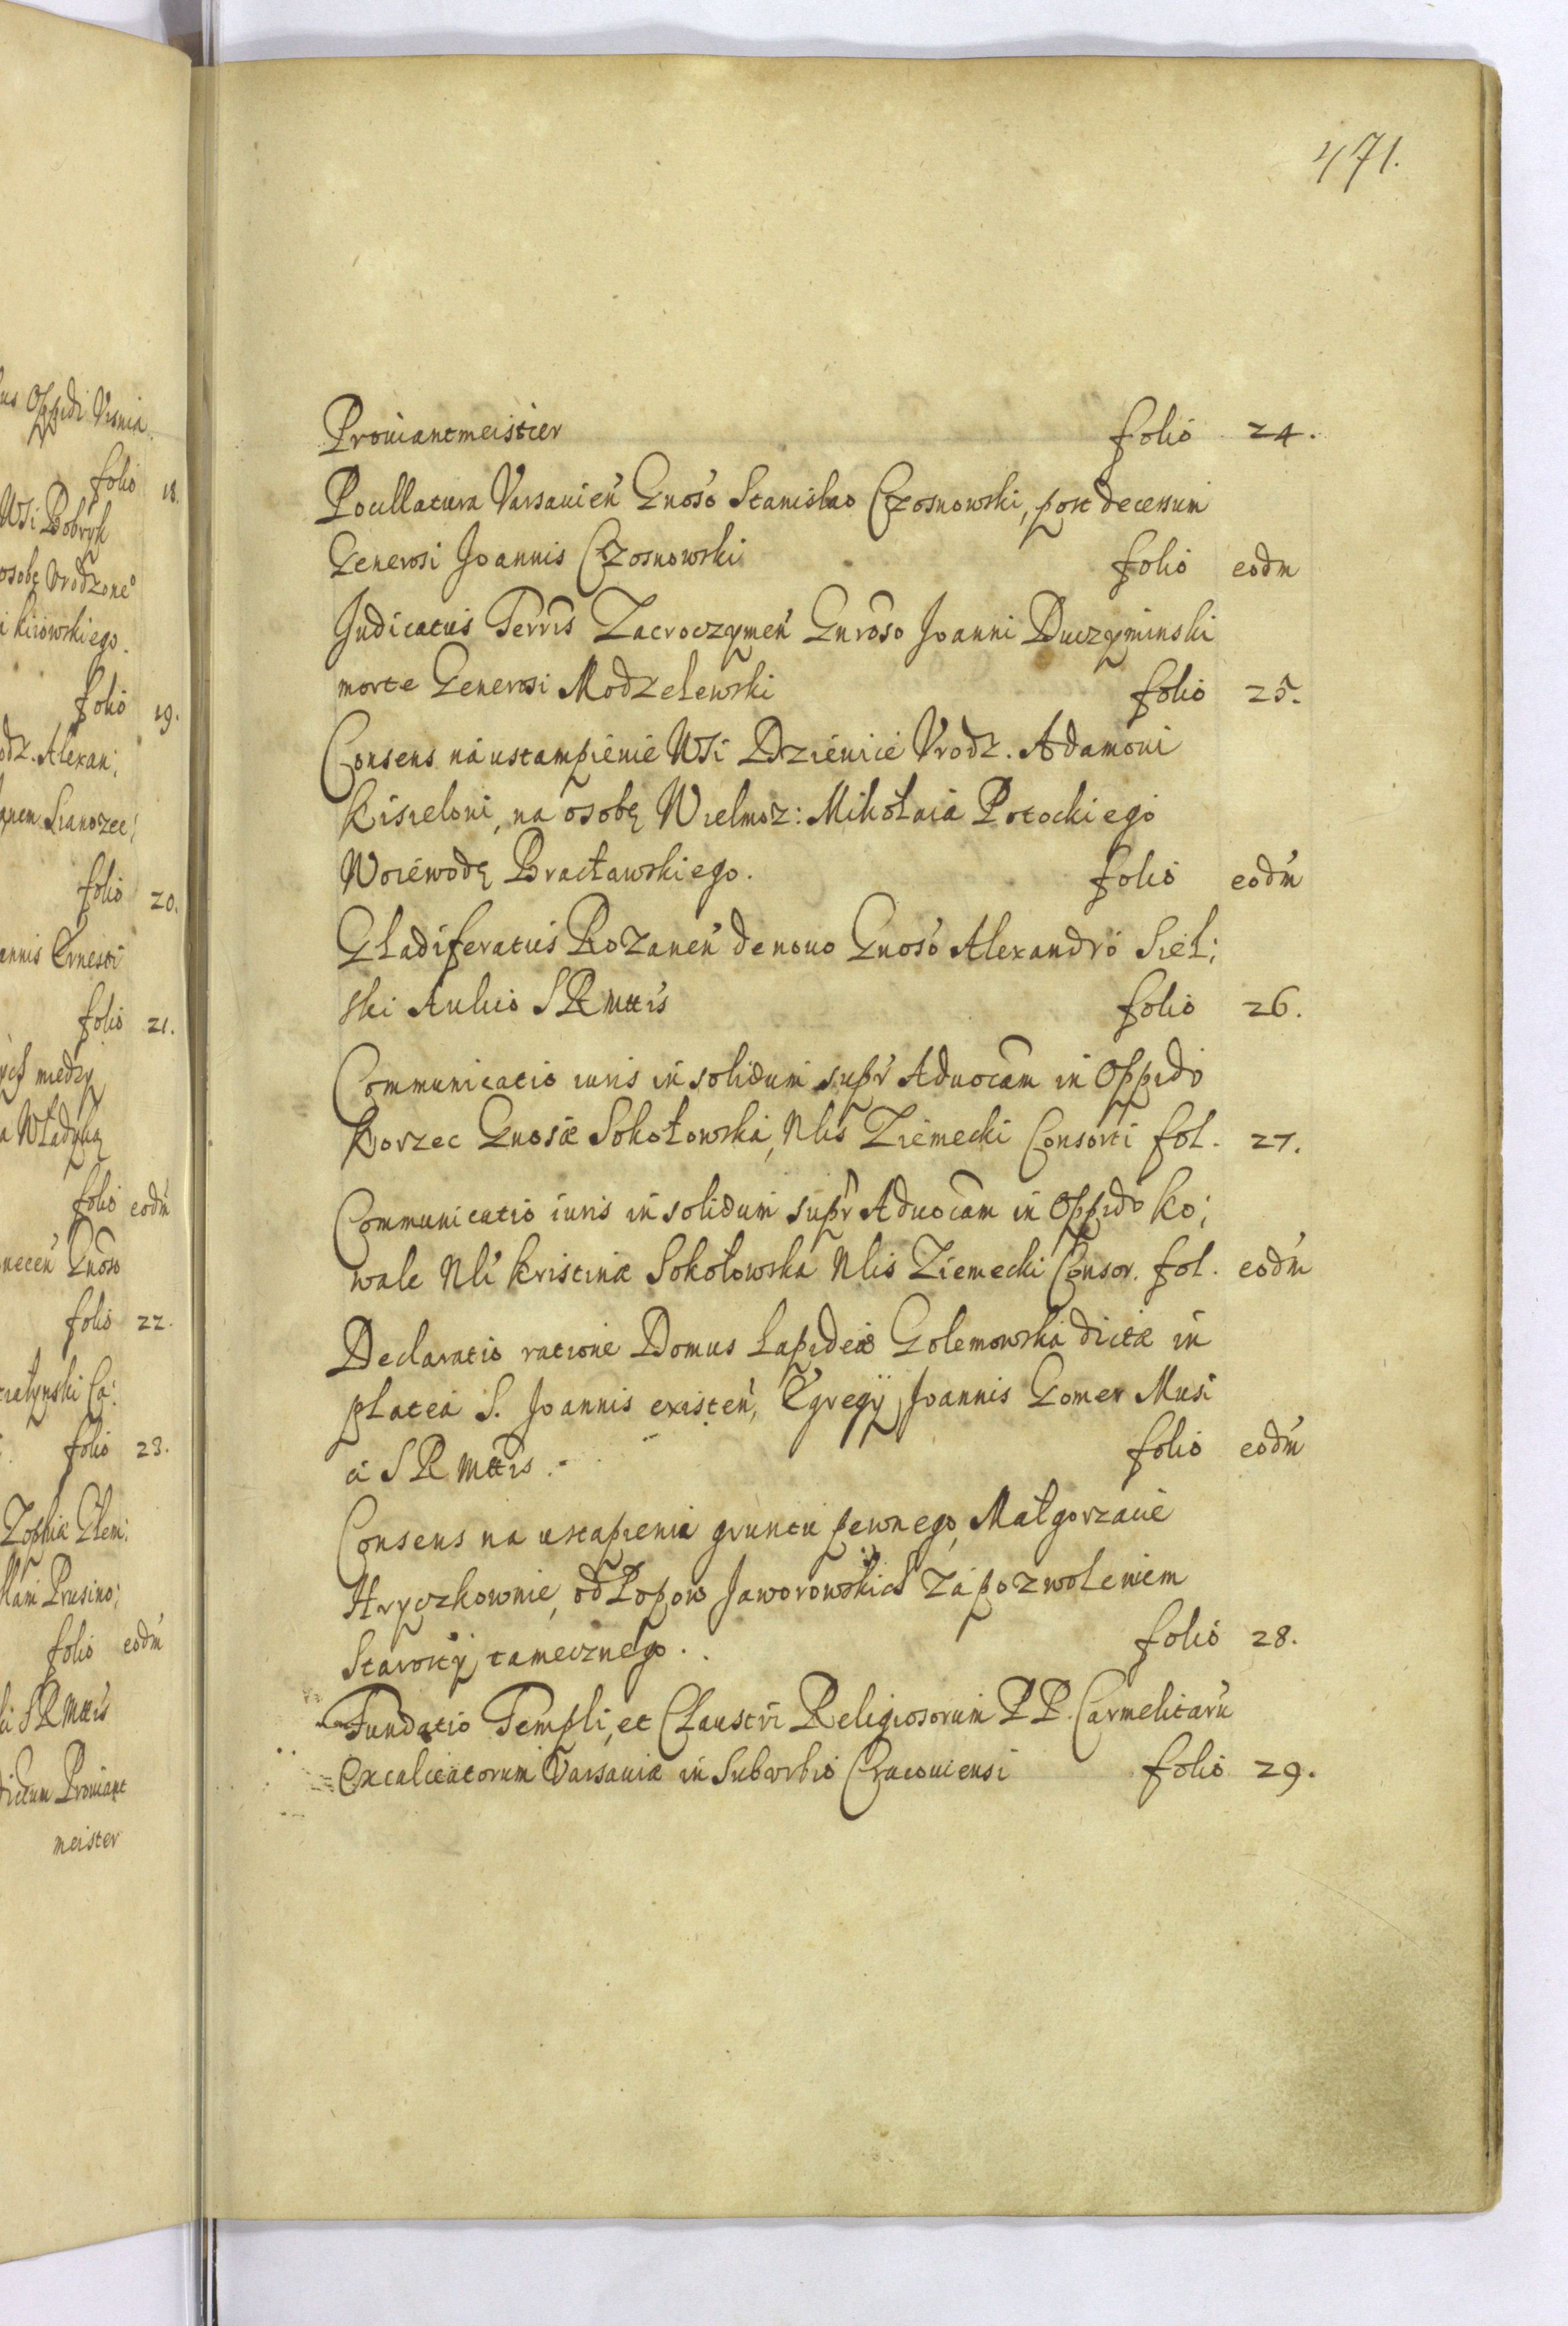 us Oppidi Visnia.
folio 18.
Wsi Bobryk
osobę Vrodzone°
i kiiowskiego.
folio 19.
odz. Alexan:
folio 20.
annis Ernesti
folio 21.
ych między
a Władyką
folio eodm̃
necen̄ Gnoso
folio 22.
folio 23.
Zophiæ Glem:
Prusino:
folio eodm̃
ki SRMttis
dictum Prouiant
meister
471.
Prouiantmeistier folio 24.
Pocillatura Varsauien̄ Gnoso Stanislao Czosnowski, post decessum
Generosi Joannis Czosnowski folio eodm
Judicatus Terrs̃ Zacroczymen̄ Gnroso Joanni Duczyminski
morte Generosi Modzelewski folio 25.
Consens na ustampienie Wsi Dzienice Vrodz. Adamoui
Kisieloui, na osobę Wielmoz: Mikołaia Potockiego
Woiewodę Bracławskiego. folio eodm̃
Gladiferatus Rozanen̄ denouo Gnoso Alexandro Siel:
ski Aulico SRMttis folio 26.
Communicatio iuris in solidum supr̃ Aduocam̃ in Oppido
Korzec Gnosæ Sokołowska, Nlis Ziemecki Consorti fol. 27.
Communicatio iuris in solidum supr̃ Aduocam̃ in Oppido Ko:
wale Nli Kristinæ Sokołowska Nlis Ziemecki Consor. fol. eodm̃
Declaratio ratione Domus Lapideæ Golemowska dictæ in
platea S. Joannis existen̄, Egregij Joannis Gomer Musi
ci SRMttis. folio eodm̃
Consens na ustapienia gruntu pewnego, Małgorzacie
Hryczkownie, od Popow Jaworowskich za pozwoleniem
Starosty tamecznego. folio 28.
Fundatio Templi, et Claustri Religiosorum PP. Carmelitarũ
Excalceatorum Varsauiæ in Suburbio Cracouiensi folio 29.